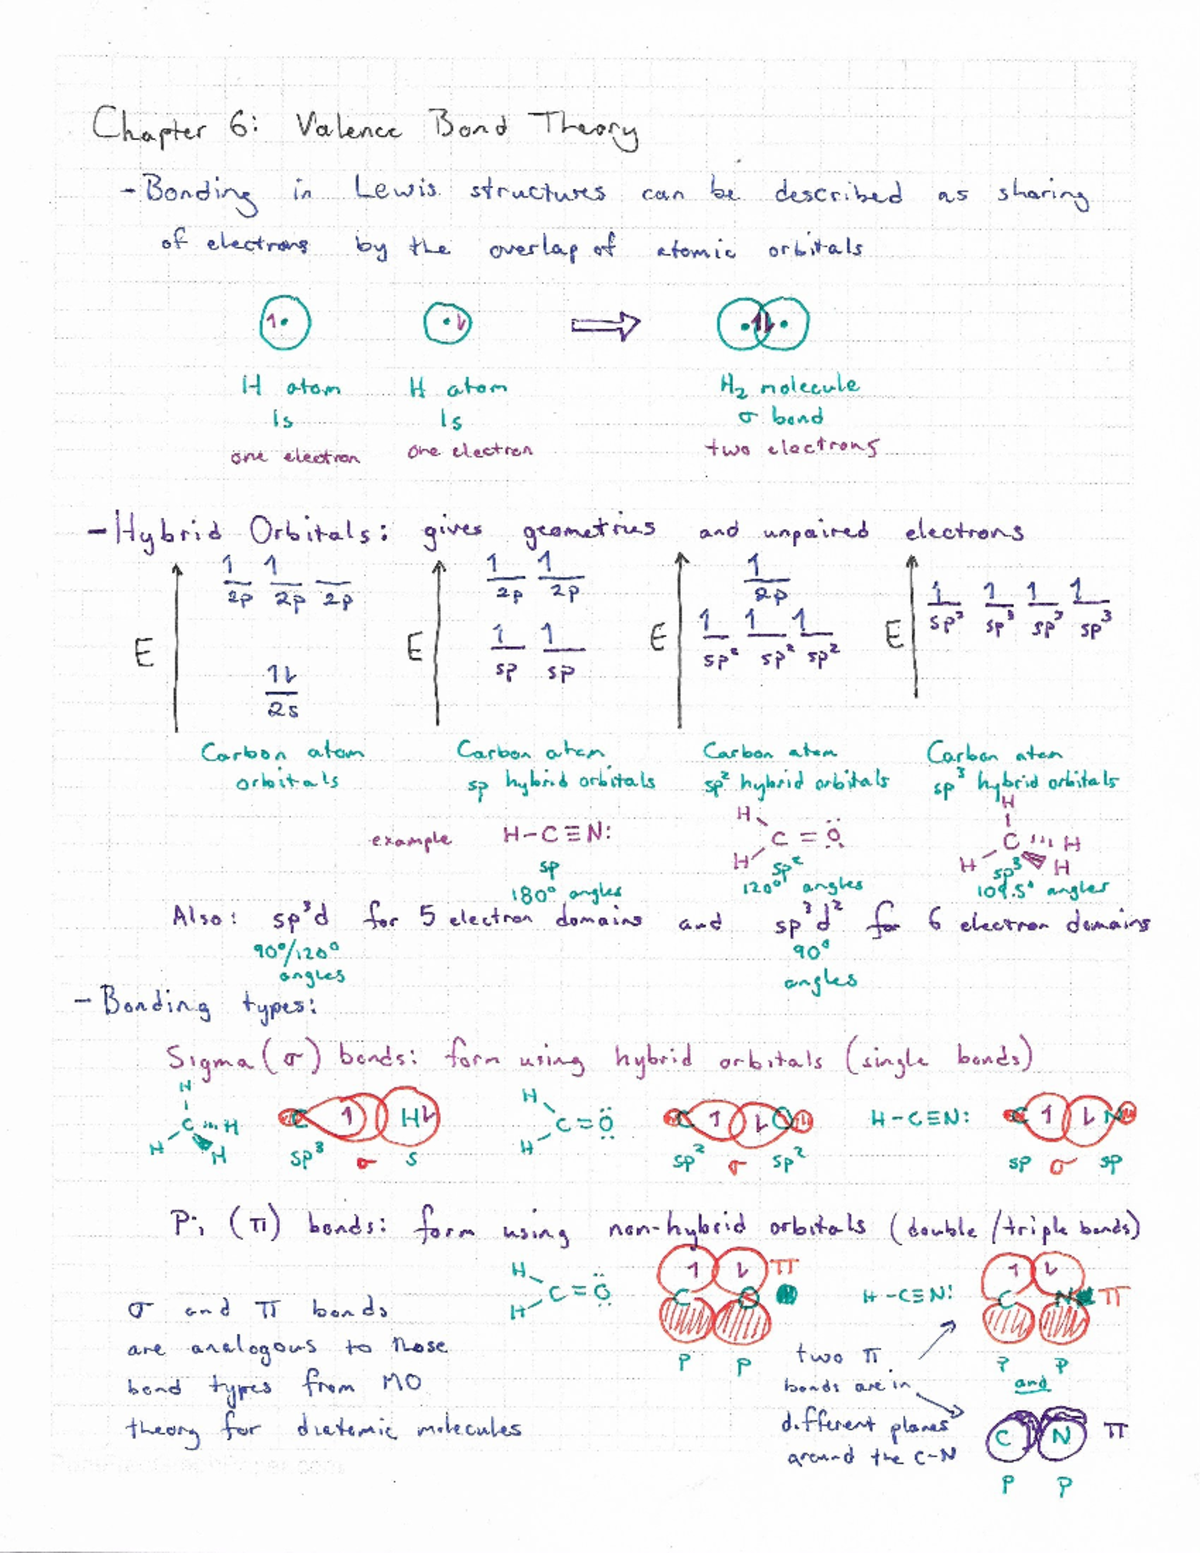 Chapter 6: Valence Bond Theory
- Bonding in Lewis structures can be described as sharing
of electrons by the overlap of atomic orbitals
H atom H atom H₂ molecule
1s 1s σ bond
one electron one electron two electrons
- Hybrid Orbitals: gives geometries and unpaired electrons
E 1 1 2p 2p 2p 1⇂ 2s
E 1 1 2p 2p 1 1 sp sp
E 1 2p 1 1 1 sp² sp² sp²
E 1 1 1 1 sp³ sp³ sp³ sp³
Carbon atom Carbon atom Carbon atom Carbon atom
orbitals sp hybrid orbitals sp² hybrid orbitals sp³ hybrid orbitals
example H-C≡N: H H C=O H C H H H
sp sp² sp³
180° angles 120° angles 109.5° angles
Also: sp³d for 5 electron domains and sp³d² for 6 electron domains
90°/120° 90°
angles angles
- Bonding types:
Sigma (σ) bonds: form using hybrid orbitals (single bonds)
H C H H H C 1 H⇂ H H C=O C 1 ⇂ O H-C≡N: C 1 ⇂ N
sp³ σ s sp² σ sp² sp σ sp
Pi (π) bonds: form using non-hybrid orbitals (double/triple bonds)
H H C=O 1 ⇂ π C O H-C≡N: 1 ⇂ C N π
p p p p
σ and π bonds
are analogous to those
bond types from MO
theory for diatomic molecules
two π
bonds are in
different planes
around the C-N
and
C N π
p p